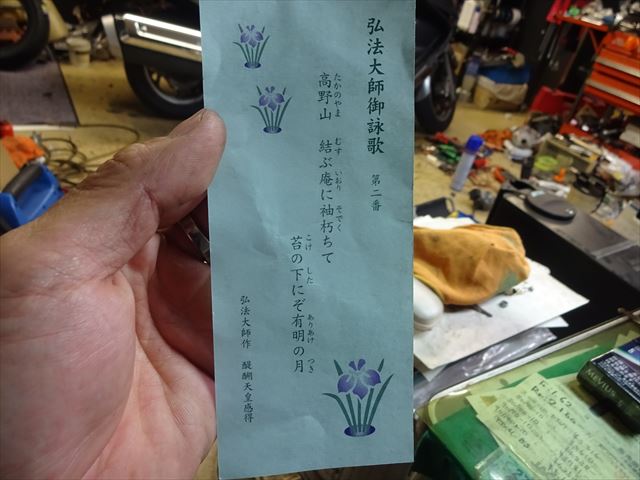 弘法大師御詠歌 第二番
たかのやま むす いおり そでく
高野山 結ぶ庵に袖朽ちて
こけ した ありあけ つき
苔の下にぞ有明の月
弘法大師作 醍醐天皇感得
MEVIUS